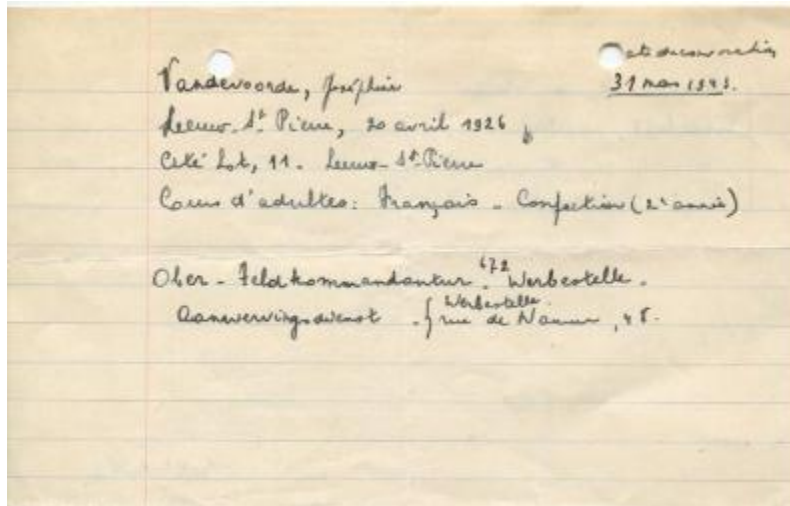 Date de convocation
31 mars 1943.
Vandevoorde, Joséphine
Leeuw-St Pierre, 20 avril 1926
Cité Lot, 11. Leeuw-St-Pierre
Cours d'adultes: Français - Confection (2e année)
Ober-Feldkommandantur 672 Werbestelle.
Aanwervingsdienst - { Werbestelle.
rue de Namur, 48.